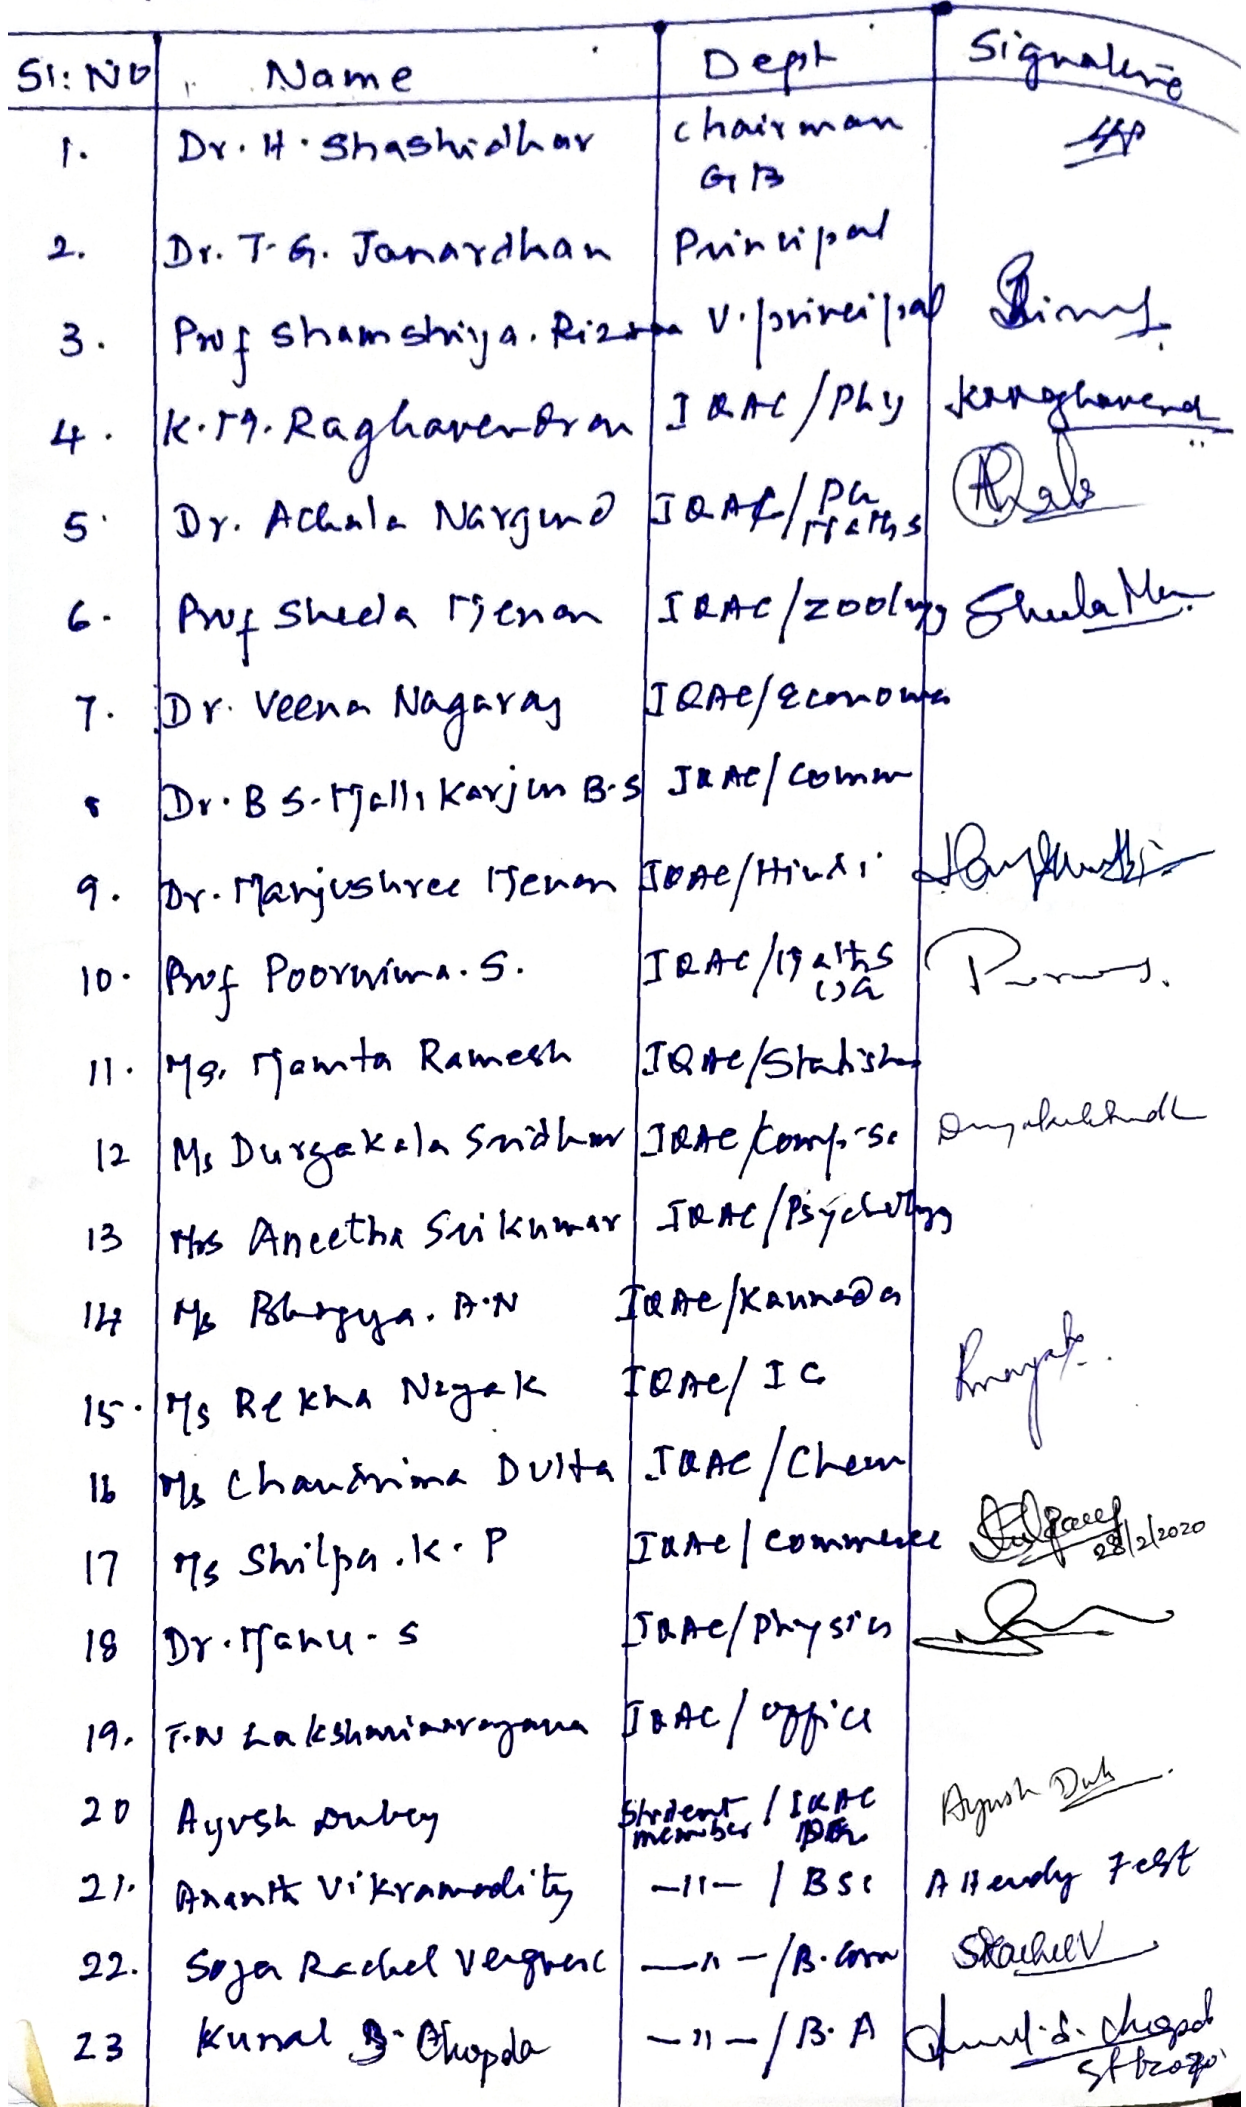 Sl: No Name Dept Signature
1. Dr. H. Shashidhar Chairman
GB
2. Dr. T. G. Janardhan Principal
3. Prof Shamshiya. V. principal
4. K.M. Raghavendran IQAC/Phy
5. Dr. Achala Nargund IQAC/PG
Maths
6. Prof Sheela Menon IQAC/Zoology Sheela Men
7. Dr. Veena Nagaraj IQAC/Economics
8 Dr. B S. Mallikarjun B.S IQAC/Comm
9. Dr. Manjushree Menon IQAC/Hindi
10. Prof Poornima. S. IQAC/Maths
UG
11. Ms. Mamta Ramesh IQAC/Statistics
12 Ms Durgakala Sridhar IQAC/Comp. Sc
13 Mrs Aneetha Srikumar IQAC/Psychology
14 Ms Bhagya. A.N IQAC/Kannada
15. Ms Rekha Nayak IQAC/IC
16 Ms Chandrima Dutta IQAC/Chem
17 Ms Shilpa. K. P IQAC/Commerce
28/2/2020
18 Dr. Manu - S IQAC/Physics
19. T.N Lakshminarayana IQAC/office
20 Ayush Dubey Student / IQAC Ayush Dub
member
21. Ananth Vikramadity -"- / BSc Attendg Fest
22. Soja Rachel Verghese -"- / B.Com SRachelV
23 Kunal B. Chopda -"- / B.A